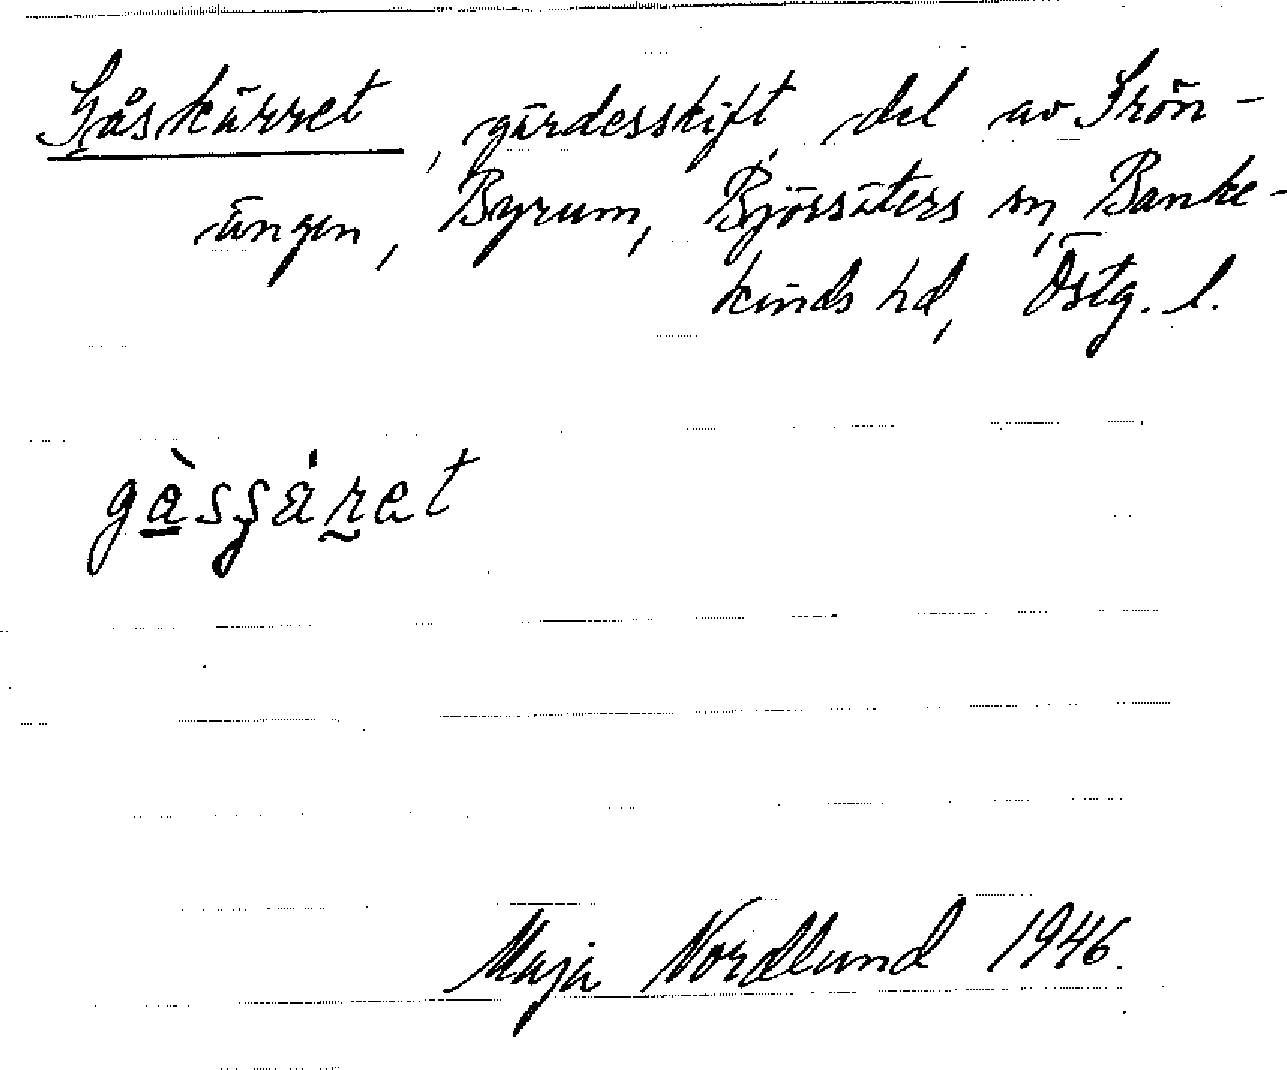 Gåskärret, gärdesskift, del av Frön-
ängen, Byrum, Björsäters sn, Banke-
kinds hd, Östg. l.
gàsʂáret
Maja Nordlund 1946.